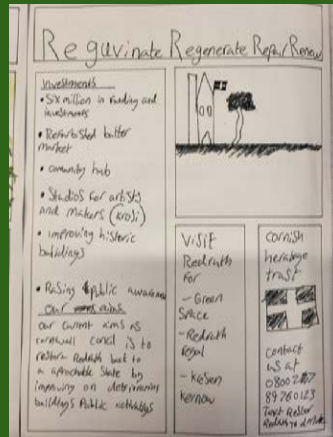 Reguvinate Regenerate Repair/Renew
Investments
• Six million in funding and
investments
• Refurbisted butter
market
• comunity hub
• Studios for artists
and Makers (krosi)
• improving historic
buildings
• Raising public awareness
our aims
our current aims as
cornwall concil is to
restore Redruth back to
a aprochable State by
improving on deteriorating
buildings Public activitys
VISIt
Redruth
For
- Green
Space
- Redruth
Regal
- Kresen
kernow
Cornish
heratage
trust
contact
us at
0800
89760123
Text Restor
Redruth to